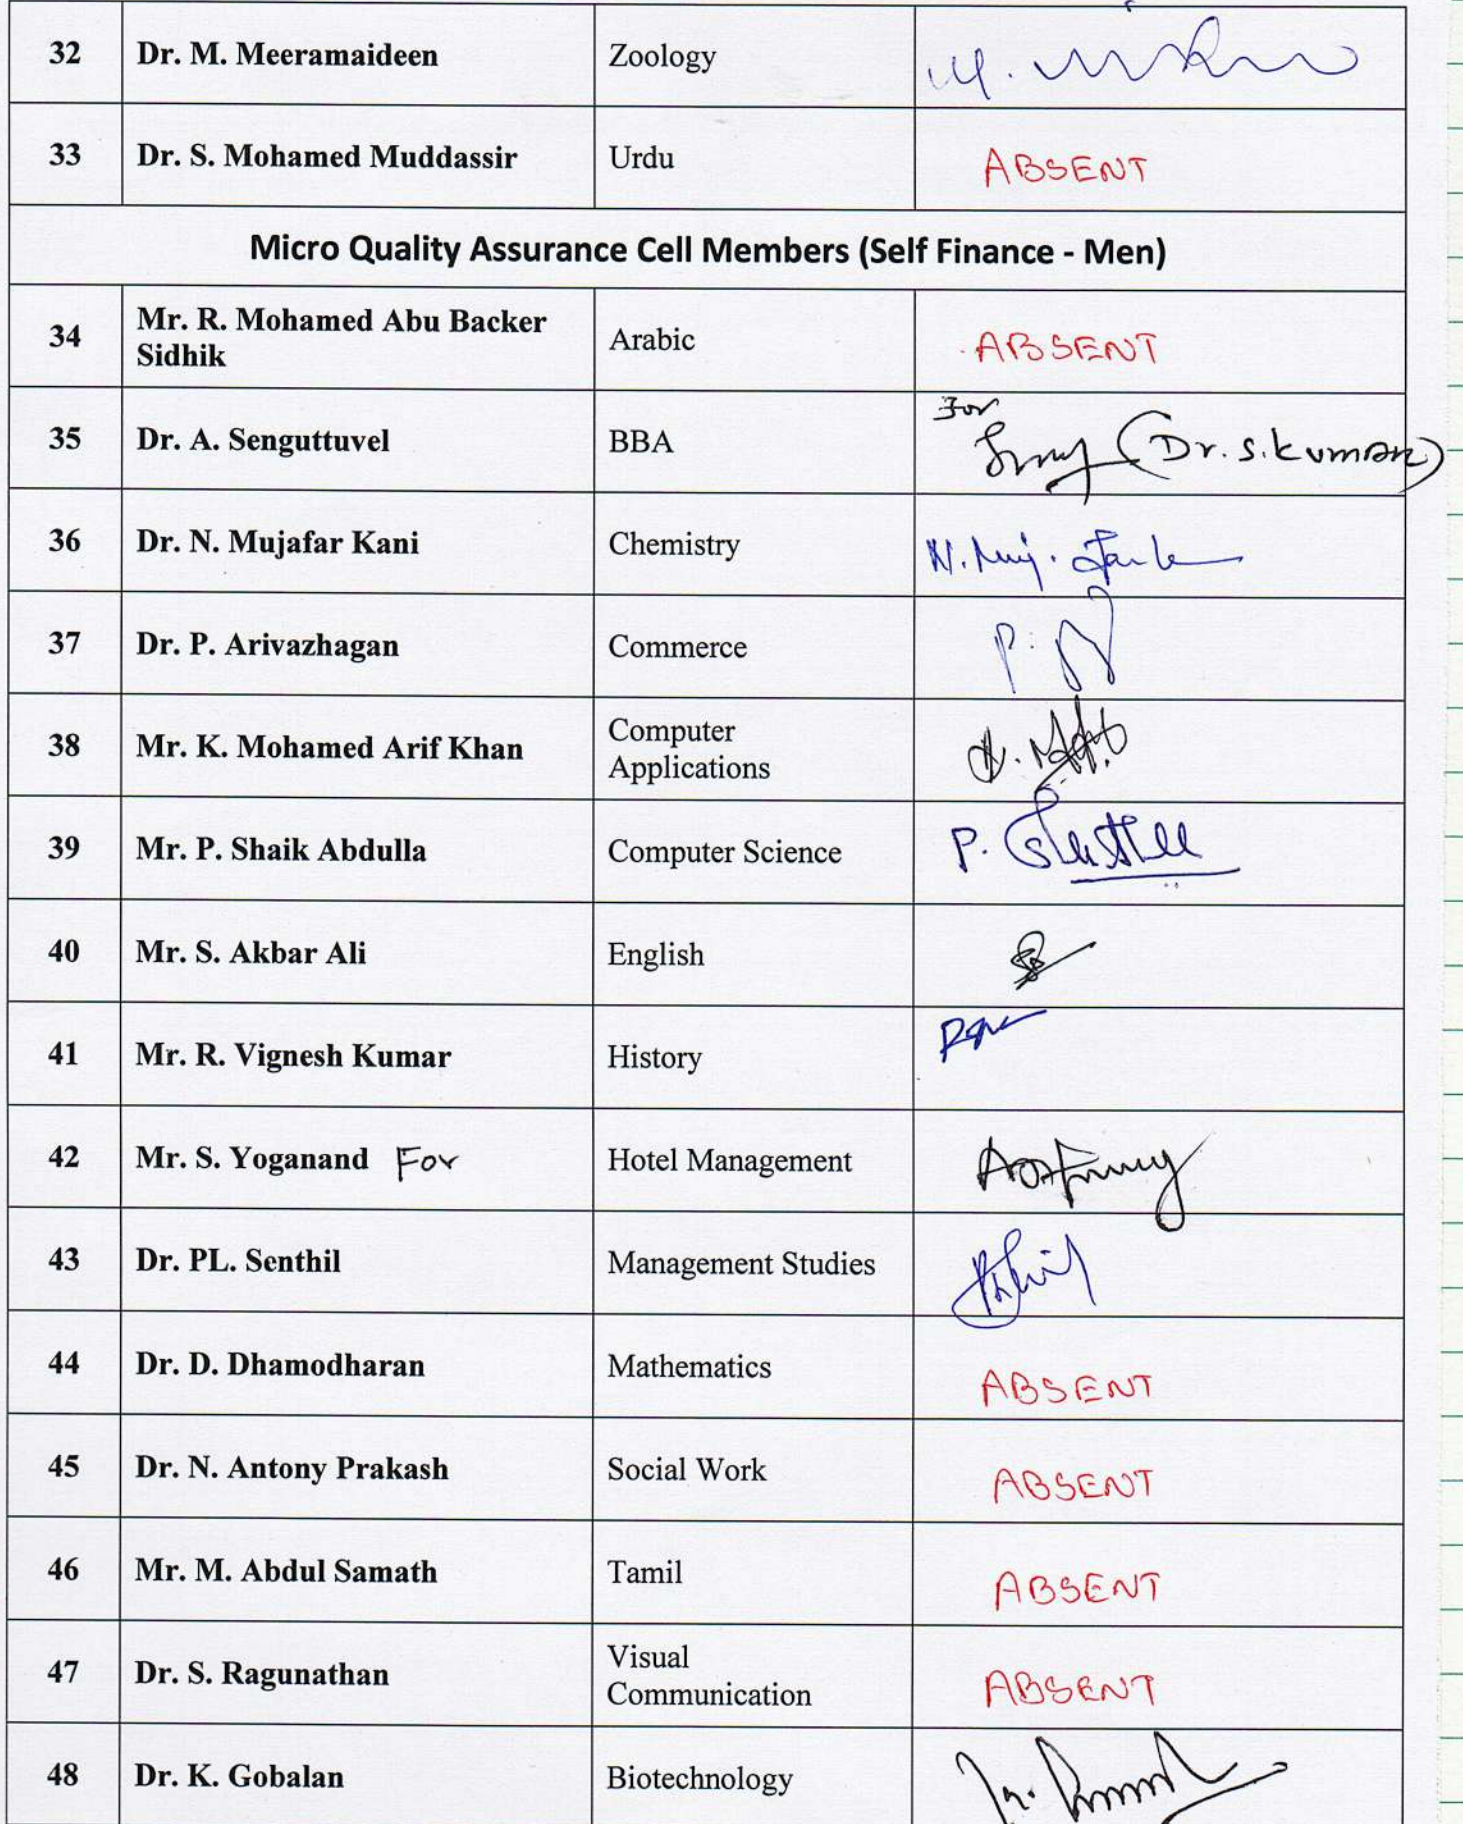 32 Dr. M. Meeramaideen Zoology
33 Dr. S. Mohamed Muddassir Urdu ABSENT
Micro Quality Assurance Cell Members (Self Finance - Men)
34 Mr. R. Mohamed Abu Backer Sidhik Arabic ABSENT
35 Dr. A. Senguttuvel BBA For (Dr. S. Kumar)
36 Dr. N. Mujafar Kani Chemistry
37 Dr. P. Arivazhagan Commerce
38 Mr. K. Mohamed Arif Khan Computer Applications
39 Mr. P. Shaik Abdulla Computer Science
40 Mr. S. Akbar Ali English
41 Mr. R. Vignesh Kumar History
42 Mr. S. Yoganand For Hotel Management
43 Dr. PL. Senthil Management Studies
44 Dr. D. Dhamodharan Mathematics ABSENT
45 Dr. N. Antony Prakash Social Work ABSENT
46 Mr. M. Abdul Samath Tamil ABSENT
47 Dr. S. Ragunathan Visual Communication ABSENT
48 Dr. K. Gobalan Biotechnology